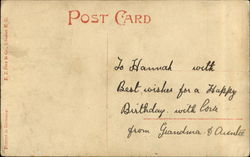 POST CARD
To Hannah with
Best wishes for a Happy
Birthday. with love
from Grandma &